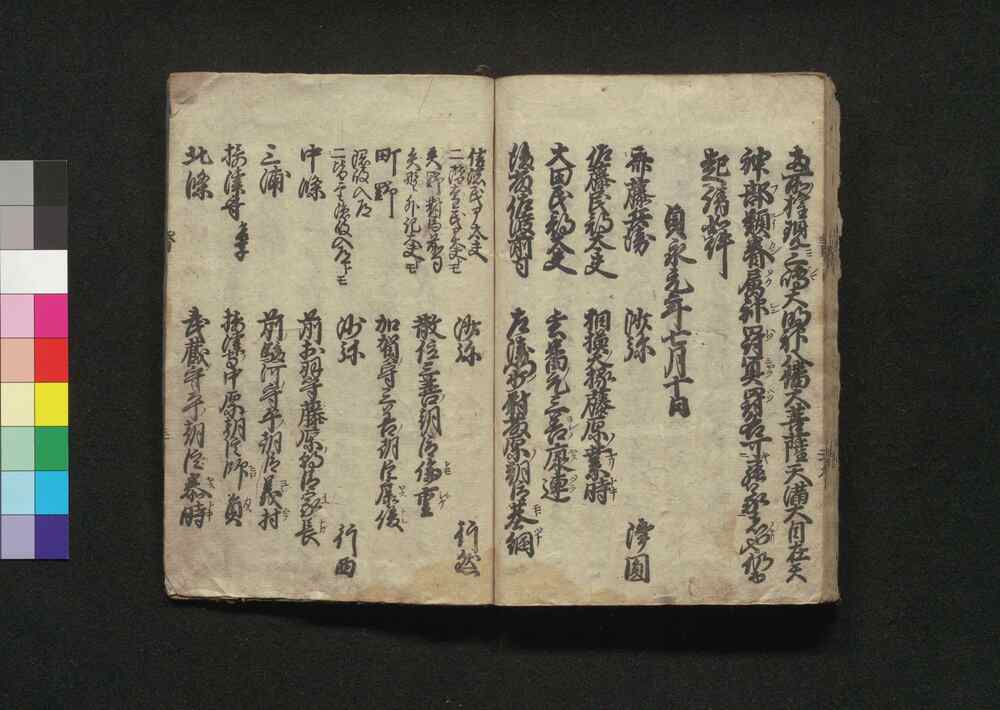 両所権現三嶋大明神八幡大菩薩天満大自在天
神部類眷属神罸冥罸各可罷蒙者也仍
起請如件
貞永元年七月十日
斎藤兵衛 沙弥 浄圓
佐藤民部大夫 相模大掾藤原業時
大田民部大夫 玄蕃允三善康連
後藤佐渡前司 左衛門少尉藤原朝臣基綱
信濃民部大夫
二階堂民部大夫モ 沙弥 行然
矢野對馬前司
矢野外記大夫モ 散位三善朝臣倫重
町野 加賀守三善朝臣康俊
隠岐入道
二階堂隠岐入道トモ 沙弥 行西
中條 前出羽守藤原朝臣家長
三浦 前駿河守平朝臣義村
摂津守 摂津守中原朝臣師員
北條 武蔵守平朝臣泰時